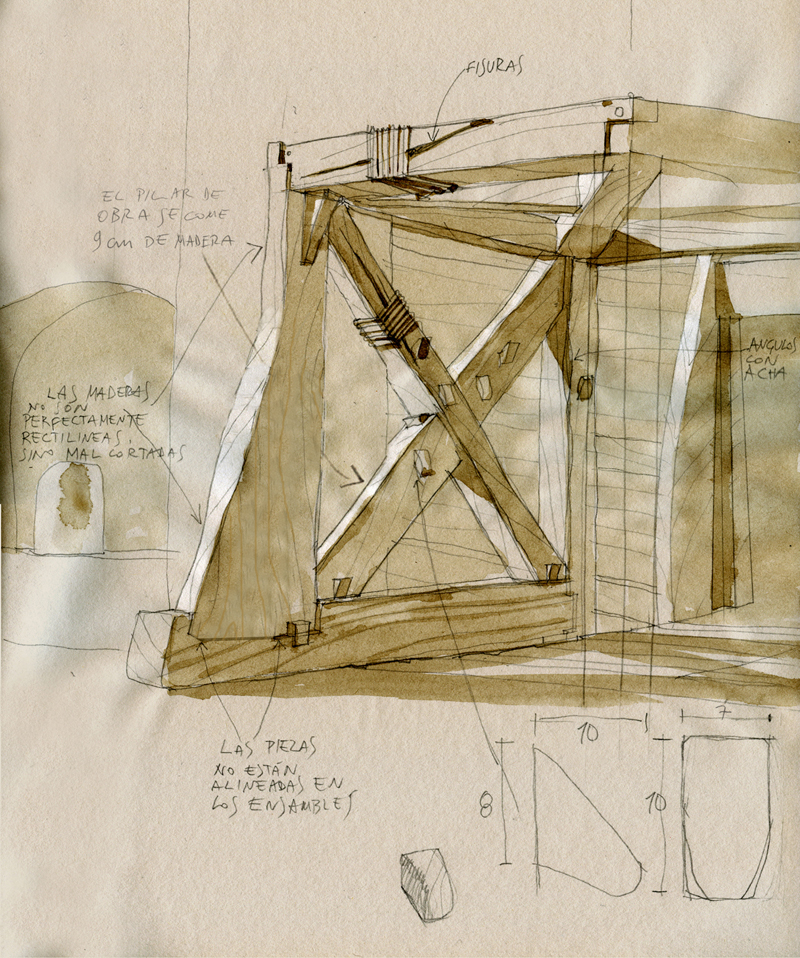 FISURAS
EL PILAR DE
OBRA SE COME
9 cm DE MADERA
ANGULOS
CON
ACHA
LAS MADERAS
NO SON
PERFECTAMENTE
RECTILINEAS,
SINO MAL CORTADAS
LAS PIEZAS
NO ESTÁN
ALINEADAS EN
LOS ENSAMBLES
10
7
8
10